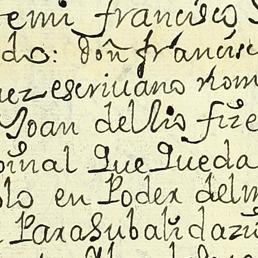 temi francisco
do: don francisc
uez escriuano nom
Joan del Rio fize
oginal que queda
lo en Poder del m
Para su balidazi